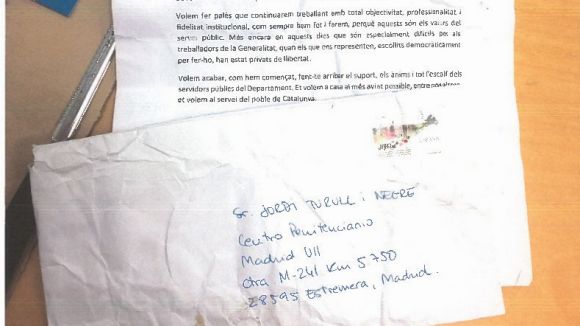 Volem fer palès que continuarem treballant amb total objectivitat, professionalitat i
fidelitat institucional, com sempre hem fet i farem, perquè aquests són els valors del
servei públic. Més encara en aquests dies que són especialment difícils per als
treballadors de la Generalitat, quan els que ens representen, escollits democràticament
per fer-ho, han estat privats de llibertat.
Volem acabar, com hem començat, fent-te arribar el suport, els ànims i tot l'escalf dels
servidors públics del Departament. Et volem a casa al més aviat possible, entre nosaltres
et volem al servei del poble de Catalunya.
Sr. JORDI TURULL i NEGRE
Centro Penitenciario
Madrid VII
Ctra M-241 Km 5750
28595 Estremera, Madrid.